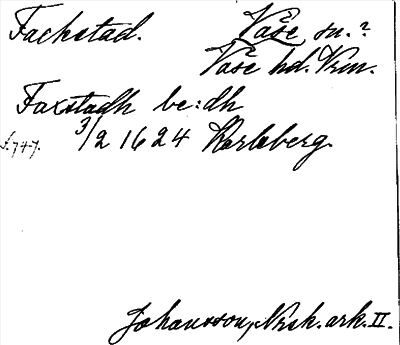 Fackstad. Väse sn.?
Väse hd. Vrm.
Faxstadh be:dh
s. 747. 3/2 1624 Karleberg.
Johansson, Nrsk. ark. II.